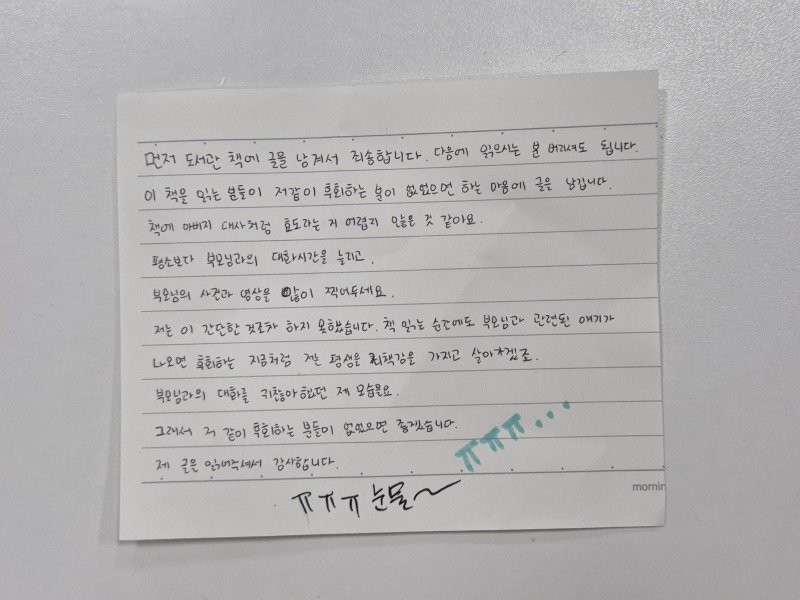 먼저 도서관 책에 글을 남겨서 죄송합니다. 다음에 읽으시는 분 버려셔도 됩니다.
이 책을 읽는 분들이 저같이 후회하는 분이 없었으면 하는 마음에 글을 남깁니다.
책에 아버지 대사처럼 효도라는 게 어렵지 않은 것 같아요.
평소보다 부모님과의 대화시간을 늘리고,
부모님의 사진과 영상을 많이 찍어두세요.
저는 이 간단한 것조차 하지 못했습니다. 책 읽는 순간에도 부모님과 관련된 얘기가
나오면 후회하는 지금처럼 저는 평생을 죄책감을 가지고 살아가겠죠.
부모님과의 대화를 귀찮아했던 제 모습을요.
그래서 저 같이 후회하는 분들이 없었으면 좋겠습니다.
ㅠㅠㅠ...
제 글을 읽어주셔서 감사합니다.
ㅠㅠㅠ 눈물~
mornin